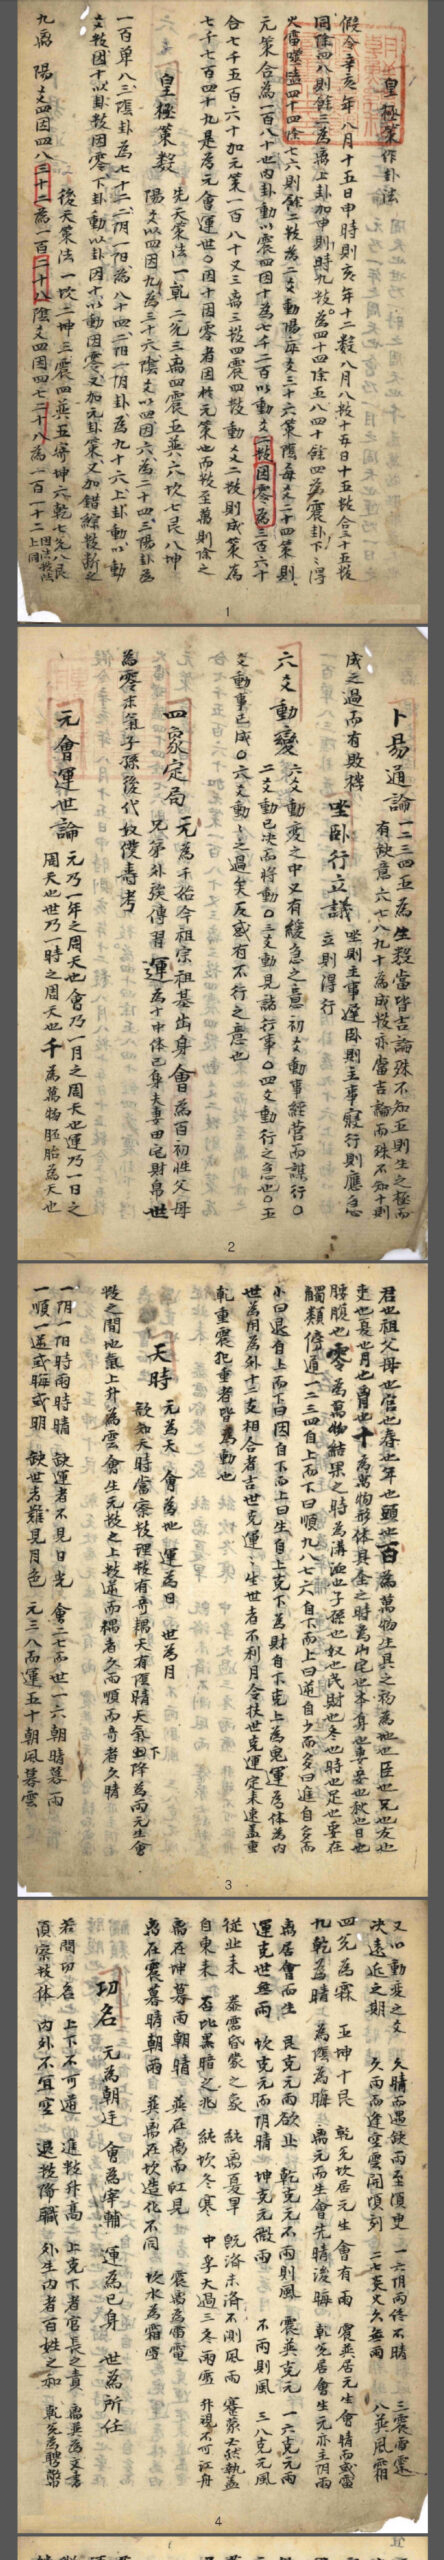 皇極策作卦法
假令辛亥年八月十五日申時則亥年十二數八月八數十五日十五數合三十五數
同除四八則餘三為离上卦加申則時九數為四十四除五八四十餘四為震卦下得
火雷噬嗑四十四除七六則餘二數為二爻動陽每爻三十六策陰每爻二十四策則
元策合為一百八十世內卦動以震四因十為七千二百以動爻二數因零為三百六十
合七千五百六十加元策一百八十又三离三數四震四數動爻二數則成策為
七千七百四十九是為元會運世〇因十因零者因於元策也而數至萬則除之
皇極策數
先天策法一乾二兌三离四震五巽六坎七艮八坤
陽爻以四因九為三十六陰爻以四因六為二十四三陽卦為
一百單八三陰卦為七十二二阴一阳為八十四二阳一阴卦為九十六上卦動以動
爻數因十以卦數因零下卦動以卦因十以動因零又加元卦策又加錯綜數斷之
後天策法一坎二坤三震四巽五寄坤六乾七兌八艮
九离陽爻四因四八三十二為一百二十八陰爻四因四七二十八為一百一十二
因法數法
上同
1
卜易通論
一二三四五為生殺當皆吉論殊不知五則生之極而
有缺意六七八九十為成數亦當吉論而殊不知十則
成之過而有敗機
坐卧行立議
坐則主事遲卧則主事寢行則應急
立則得行
六爻動變
六爻動變之中又有緩急之意初爻動事經营而謀行〇
二爻動已决而將動〇三爻動見諸行事〇四爻動行之急也〇五
爻動事已成〇六爻動之過矣反惑有不行之意也
四象定局
元為千始今祖宗祖基出身會為百初性父母
兄弟外族傳習運為十中体己身夫妻田宅財帛世
為零末氣子孫後代奴僕壽考
元會運世論
元乃一年之周天也會乃一月之周天也運乃一日之
周天也世乃一時之周天也千為萬物胚胎為天也
2
君也祖父母也官也春也年也頭也百為萬物生具之初為地也臣也兄也友也
吏也夏也月也胷也十為萬物形体具全之時為山宅也本身也妻妾也秋也日也
腰腹也零為萬物結果之時為溝洫也子孫也奴也民財也冬也時也足也要在
觸類傍通一二三四自上而下曰順九八七六自下而上曰逆自少而多曰進自多而
小曰退自上而下曰因自下而上曰生自上克下為財自下克上為鬼運為体為内
世為用為外十二支相合者吉世克運運生世者不利月令扶世克運定未速蓋重
乾重震犯重者皆為動也
天時
元為天 會為地 運為日 世為月
欲知天時當察數理數有奇耦天有陰晴天氣下降為雨元生會
數之間地氣上升為雲會生元數之上數逆而耦者久雨順而奇者久晴
一阴一阳時雨時晴 缺運者不見日光 會二七而世一六朝晴暮雨
一順一逆或晦或明 缺世者難見月色 元三八而運五十朝風暮雲
3
又以動變之爻 久晴而遇缺雨至須更 一六阴雨終不晴 三震雷霆
决遠近之期 久雨而逢空雲開頃刻 二七炎火久無雨 八巽風霜
四兌為霖 五坤十艮 乾兌坎居元生會有雨 震巽居元生會晴而或雷
九乾為晴 為陰為晦 离元而生會先晴後晦 乾兌居會生元亦主阴雨
离居會而生 艮克元雨欲止 乾克元不雨則風 震巽克元 一六克元雨
運克世無雨 坎克元而阴晴 坤克元微雨 不雨則風 三八克元風
從北未 泰需昏蒙之象 純离夏旱 既济未济不測風雨 蹇蒙
自東未 否比黑暗之兆 純坎冬寒 中孚大過三冬雨雪 升視不可江舟
离在坤暮雨朝晴 巽在离而虹見 震离為雷電
离在震暮晴朝雨 巽离在坎造化不同 坎水為霜雪
功名
元為朝廷 會為宰輔 運為己身 世為所任
若問功名 上下不可逆 進數升高 上克下者官長之責 离巽為文書
須察數体 内外不宜空 退數降職 外生内者百姓之和 乾兌為聘幣
4